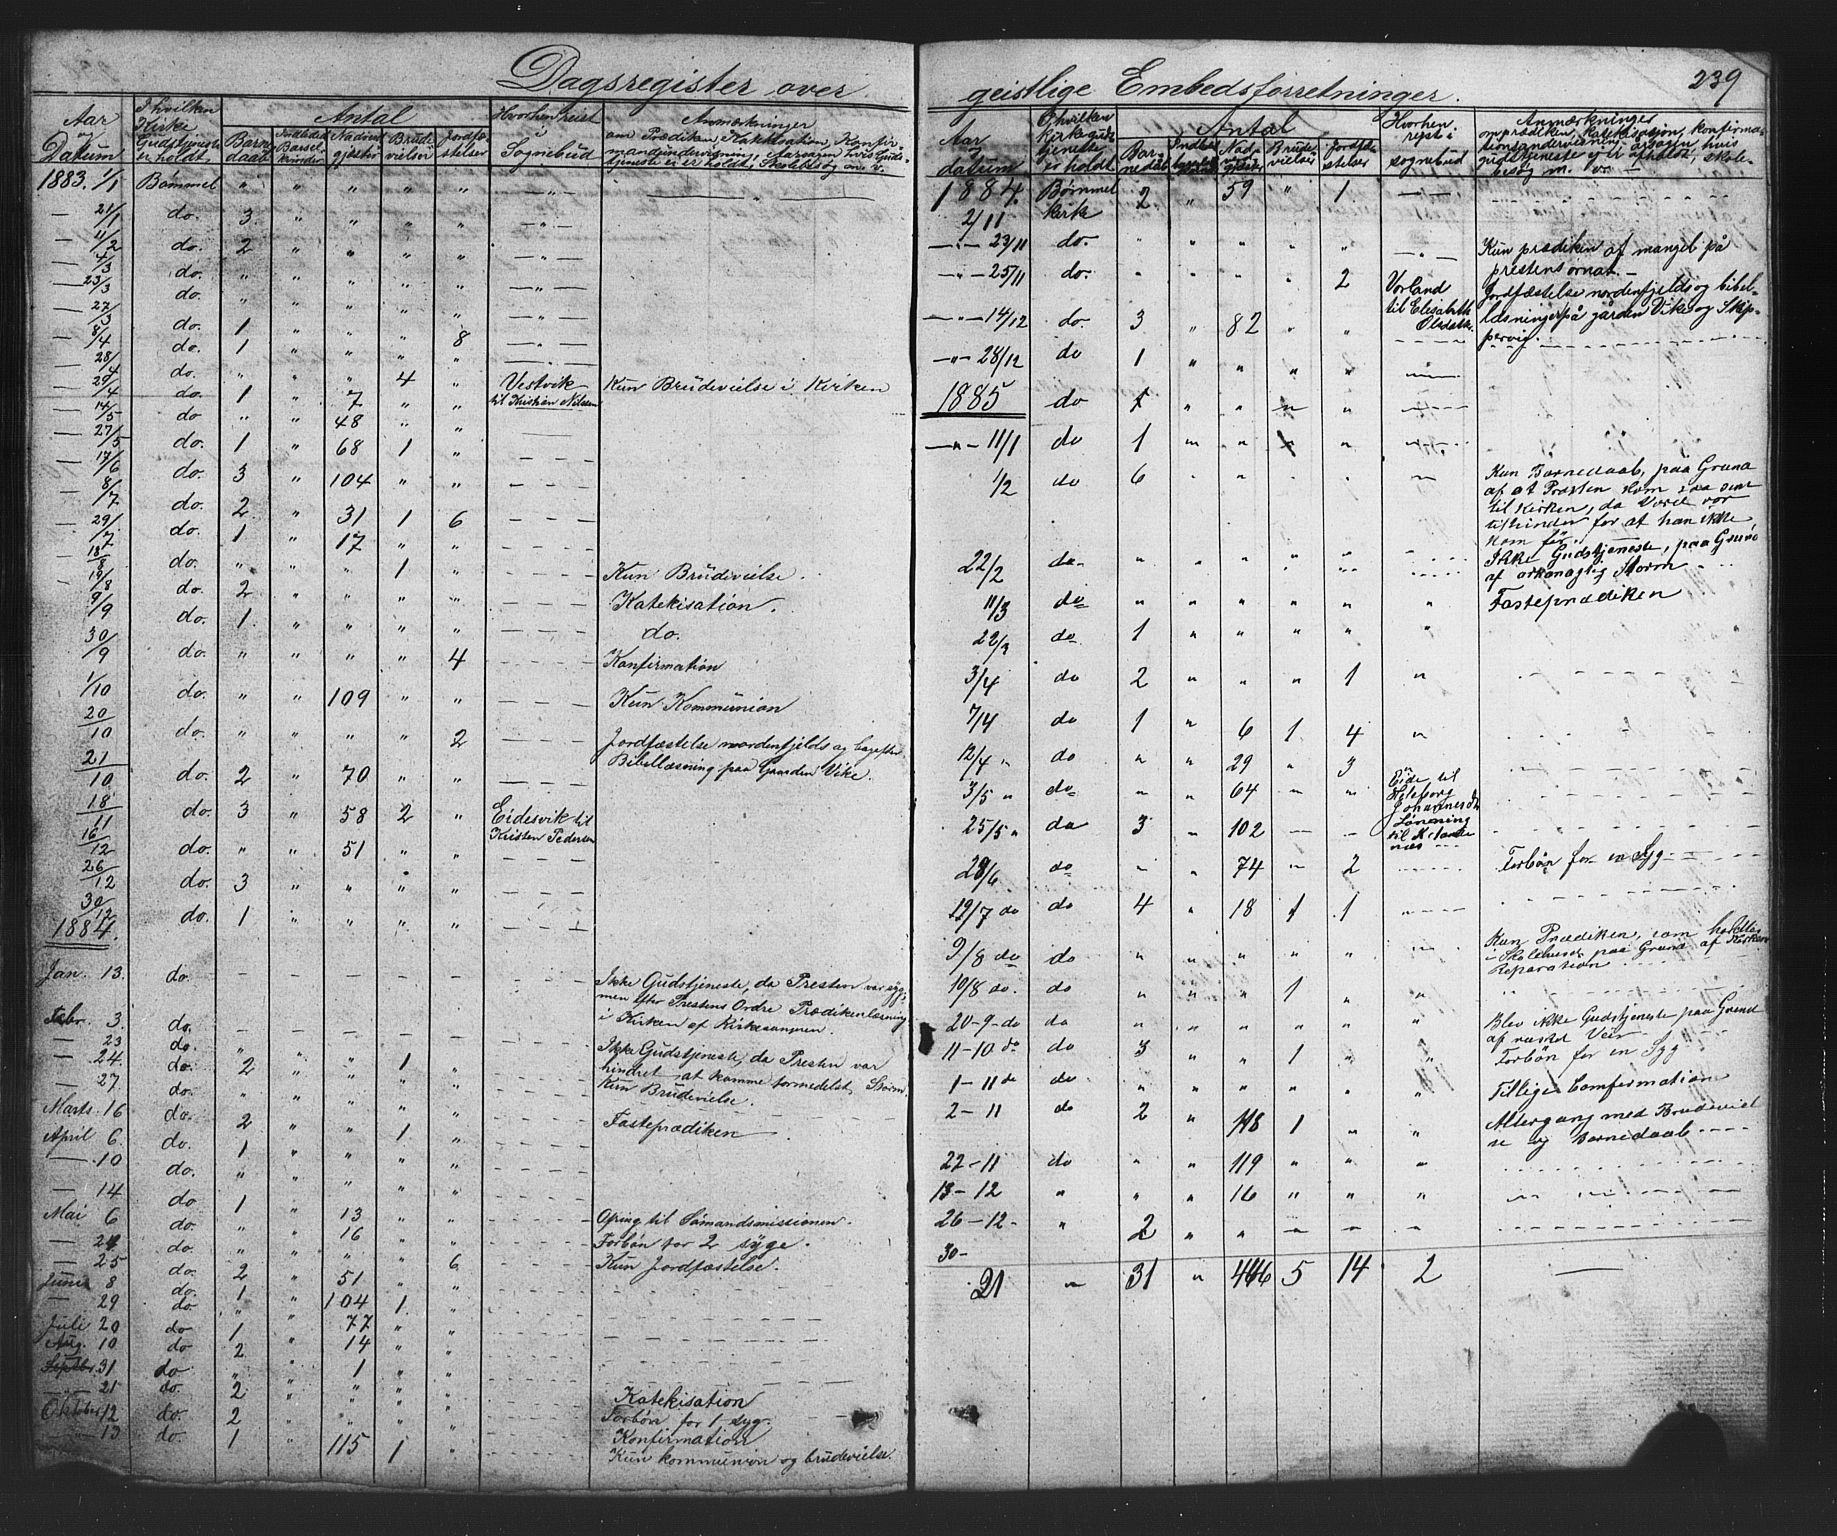 Dagsregister over geistlige Embedsforretninger.
239
Aar og Datum
I hvilken Kirke Gudstjeneste er holdt.
Antal
Barnedaab
Nadverdgjester
Brudevielser
Jordfæstelser
Hvorhen reist i Sognebud
Anmærkninger
om Prædiken, Katekisation, Konfirmandundervisning, Aarsagen, hvis Gudstjeneste ei er holdt, Skolebesøg m. v.
1883. 1/1 Bømmel " " " " "
— 21/1 do. 3 " " " "
— 11/2 do. 2 " " " "
— 4/3 do. " " " " "
— 23/3 do. " " " " "
— 27/3 do. " " " " "
— 8/4 do. 1 " " " 8
— 28/4 do. 1 " " " "
— 29/4 do. " " " 4 " Vestvik til Kristian Nilssen Kun Brudevielse i Kirken
— 14/5 do 1 " 7 " "
— 27/5 do. " " 48 " "
— 17/6 do. 1 " 68 1 "
— 8/7 do. 3 " 104 " "
— 29/7 do. 2 " 31 1 6
— 18/8 do. 1 " 17 " "
— 19/8 do. " " " 1 " Kun Brudevielse.
— 9/9 do. 2 " " " " Katekisation.
— 30/9 do. 1. " " " " do.
— 1/10 do. " " " " 4 Konfirmation
— 20/10 do. " " 109 " " Kun Kommunion
— 21/10 do. " " " " 2 Jordfæstelse nordenfjelds og bagefter Bibellæsning paa Gaarden Vike.
— 18/11 do. 2 " 70 " "
— 16/12 do. 3 " 58 2 " Eidesvik til Kristen Pedersen
— 26/12 do. " " 51 " "
— 30/12 do. 3 " " " "
1884. do. 1 " " " "
Jan. 13. do. — — — — — Ikke Gudstjeneste, da Presten var syg, men efter Prestens Ordre Prædikenlæsning i Kirken af Kirkesangeren.
Febr. 3. do. — — — — —
— 23 do. " " " 1 " Ikke Gudstjeneste, da Presten var hindret at komme formedelst Storm
— 24. do. 2 " " " " Kun Brudevielse.
— 27. do. " " " " "
Marts. 16 do. 2 " " 1 " Fasteprædiken
April 6. do. 1 " " " "
— 10 do. " " " " "
— 14 do 1 " 13 " "
Mai 6 do. " " 16 " " Ofring til Sømandsmissionen.
— 24 do. " " " " " Forbøn for 2 syge.
— 25 do. 2 " 51 " 6 Kun Jordfæstelse.
Juni 8 do. 1 " 104 1. "
— 29 do " " 77 " "
Juli 20 do 1 " 14 " "
Aug. 10 do 2 " 1 " "
31 do " " " " "
— 21 do 2 " " " " Katekisation
Oktober 12 do. 2 " " " " Forbøn for 1 syg.
— 13 do. 1 " 115 1 " Konfirmation
Kun kommunion og brudevielse.
Aar og datum
I hvilken kirke gudstjeneste er holdt
Antal
Barnedaab
Brudevielser
Jordfæstelser
Hvorhen reist i sognebud
Anmærkninger
om prædiken, katekisation, konfirmationsundervisning, årsagen, hvis gudstjeneste ej er afholdt, skolebesøg m. v.
1884. 2/11 Bømmel kirk 2 " 59 " 1
— " — 23/11 do. " " " " " Kun prædiken af mangel på prestens ornat. —
— " — 25/11 do. " " " " 2 Vorland til Elisabeth Olsdtr. Jordfæstelse nordenfjelds og bibellæsninger på gården Vike og Skippervig.
— " — 14/12 do. 3 " 82 " "
— " — 28/12 do 1 " " " "
1885 do 1 " " " "
— " — 11/1 do 1 " " 1 "
1/2 do 6 " " " " Kun Barnedaab, paa Grund af at Præsten kom saa sent til Kirken, da Veiret var tilhinder for at han ikke kom før.
22/2 do " " " " " Ikke Gudstjeneste, paa Grund af orkanagtig Storm
11/3 do " " " " " Fasteprædiken
22/3 do 1 " " " "
3/4 do 2 " " " 1
7/4 do 1 " 6 1 4
12/4 " do " " 29 " 3
3/5 " do " " 64 " " Eide til Johannesdtr
25/5 " do 3 " 102 — — Lønning til
28/6 do " " 74 " 2 Forbøn for en Syg
19/7 do do 4 " 18 1 1
9/8 do do " " " " " Kun Prædiken, som holdtes i Skolehuset paa Grund af Kirkens Reparation
10/8 do. do " " " 1 "
20-9-do do " " " " " Blev ikke Gudstjeneste paa Grund af Veir
11-10 do do 3 " " 1 " Forbøn for en Syg
1-11 do do " " " " " Tillige Comfermation
2-11 do 2 " 118 1 " Altergang med Brudevielse og Barnedaab
22-11 do " " 119 " "
13-12 " " " 16 " "
26-12- " 2 " " — —
30-
21 " 31 " 446 5 14 2